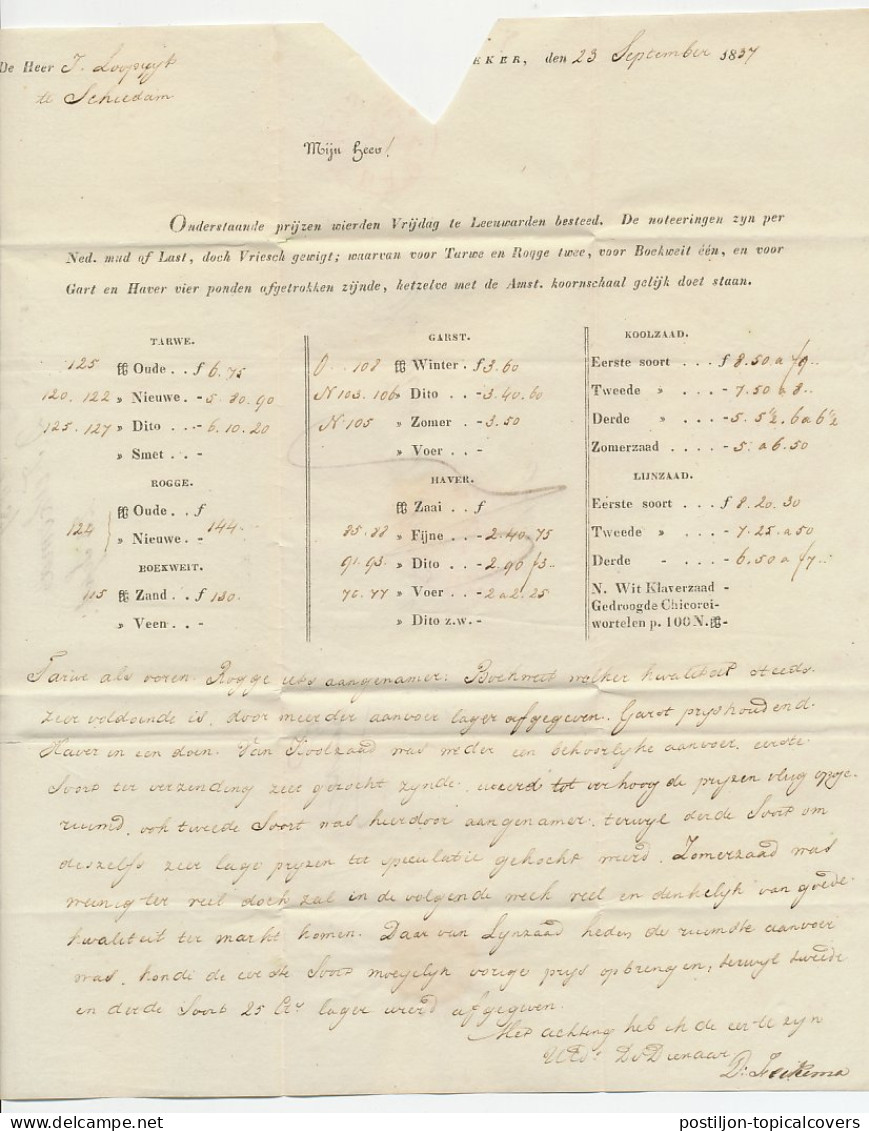 De Heer T. Loopuyt
te Schiedam
EKER, den 23 September 1837
Mijn Heer!
Onderstaande prijzen wierden Vrijdag te Leeuwarden besteed. De noteeringen zyn per
Ned. mud of Last, doch Vriesch gewigt; waarvan voor Tarwe en Rogge twee, voor Boekweit één, en voor
Garst en Haver vier ponden afgetrokken zijnde, hetzelve met de Amst. koornschaal gelijk doet staan.
TARWE.
125 ℔ Oude . . f 6.75
120. 122 » Nieuwe . - 5.80.90
125. 127 » Dito . . - 6.10.20
» Smet . . -
ROGGE.
℔ Oude . . f
124 } » Nieuwe . - 144.
BOEKWEIT.
115 ℔ Zand . . f 130.
» Veen . . -
GARST.
O. 108 ℔ Winter . f 3.60
N 103. 106 » Dito . . - 3.40.60
N. 105 » Zomer . - 3.50
» Voer . . -
HAVER.
℔ Zaai . . f
85.88 » Fijne . . - 2.40.75
91.93. » Dito . . - 2.90 f3..
76.77 » Voer . . - 2 a 2.25
» Dito z.w. -
KOOLZAAD.
Eerste soort . . . f 8.50 a f9..
Tweede » . . . - 7.50 a 8..
Derde » . . . - 5. 5½. 6 a 6½
Zomerzaad . . . . - 5. a 6.50
LIJNZAAD.
Eerste soort . . . f 8.20.30
Tweede » . . . - 7.25 a 50
Derde - . . . - 6.50 a f7..
N. Wit Klaverzaad -
Gedroogde Chicorei-
wortelen p. 100 N.℔-
Tarwe als voren. Rogge iets aangenamer: Boekweit welker kwaliteit steeds
zeer voldoende is, door meerder aanvoer lager afgegeven. Garst pryshoudend.
Haver in een doen. Van Koolzaad was weder een behoorlyke aanvoer, eerste
Soort ter verzending zeer gezocht zynde, werd tot verhoogde pryzen vlug opge-
ruimd, ook tweede Soort was hierdoor aangenamer, terwyl derde Soort om
deszelfs zeer lage pryzen tot speculatie gekocht werd. Zomerzaad was
weinig ter veil doch zal in de volgende week veel en denkelyk van goede
kwaliteit ter markt komen. Daar van Lynzaad heden de ruimste aanvoer
was, konde de eerste Soort moeyelyk vorige prys opbrengen, terwyl tweede
en derde Soort 25 Cts lager werd afgegeven.
Met achting heb ik de eer te zyn
UEds Dv Dienaar
postiljon-topicalcovers